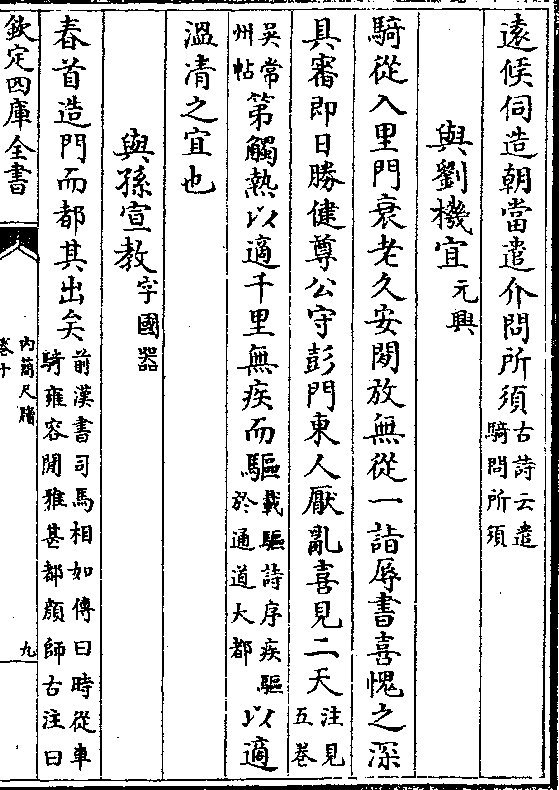 遠候伺造朝當遣介問所須古詩云遣
騎問所須
與劉機宜元興
騎從入里門衰老久安閒放無從一詣辱書喜愧之深
具審即日勝健尊公守彭門東人厭亂喜見二天注見
五卷
吳常
州帖第觸熱以適千里無疾而驅載驅詩序疾驅
於通道大都以適
溫凊之宜也
與孫宣教字國器
春首造門而都其出矣前漢書司馬相如傳曰時從車
騎雍容閒雅甚都顔師古注曰
欽定四庫全書
內簡尺牘
卷十
九